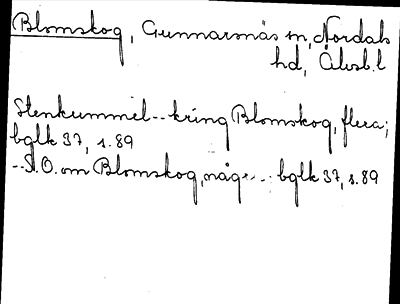 Blomskog, Gunnarsnäs sn, Nordals
hd, Älvsb.l
Stenkummel--kring Blomskog, flera;
bglk 37, s.89
--S.O. om Blomskog, någr-- bglk 37, s.89